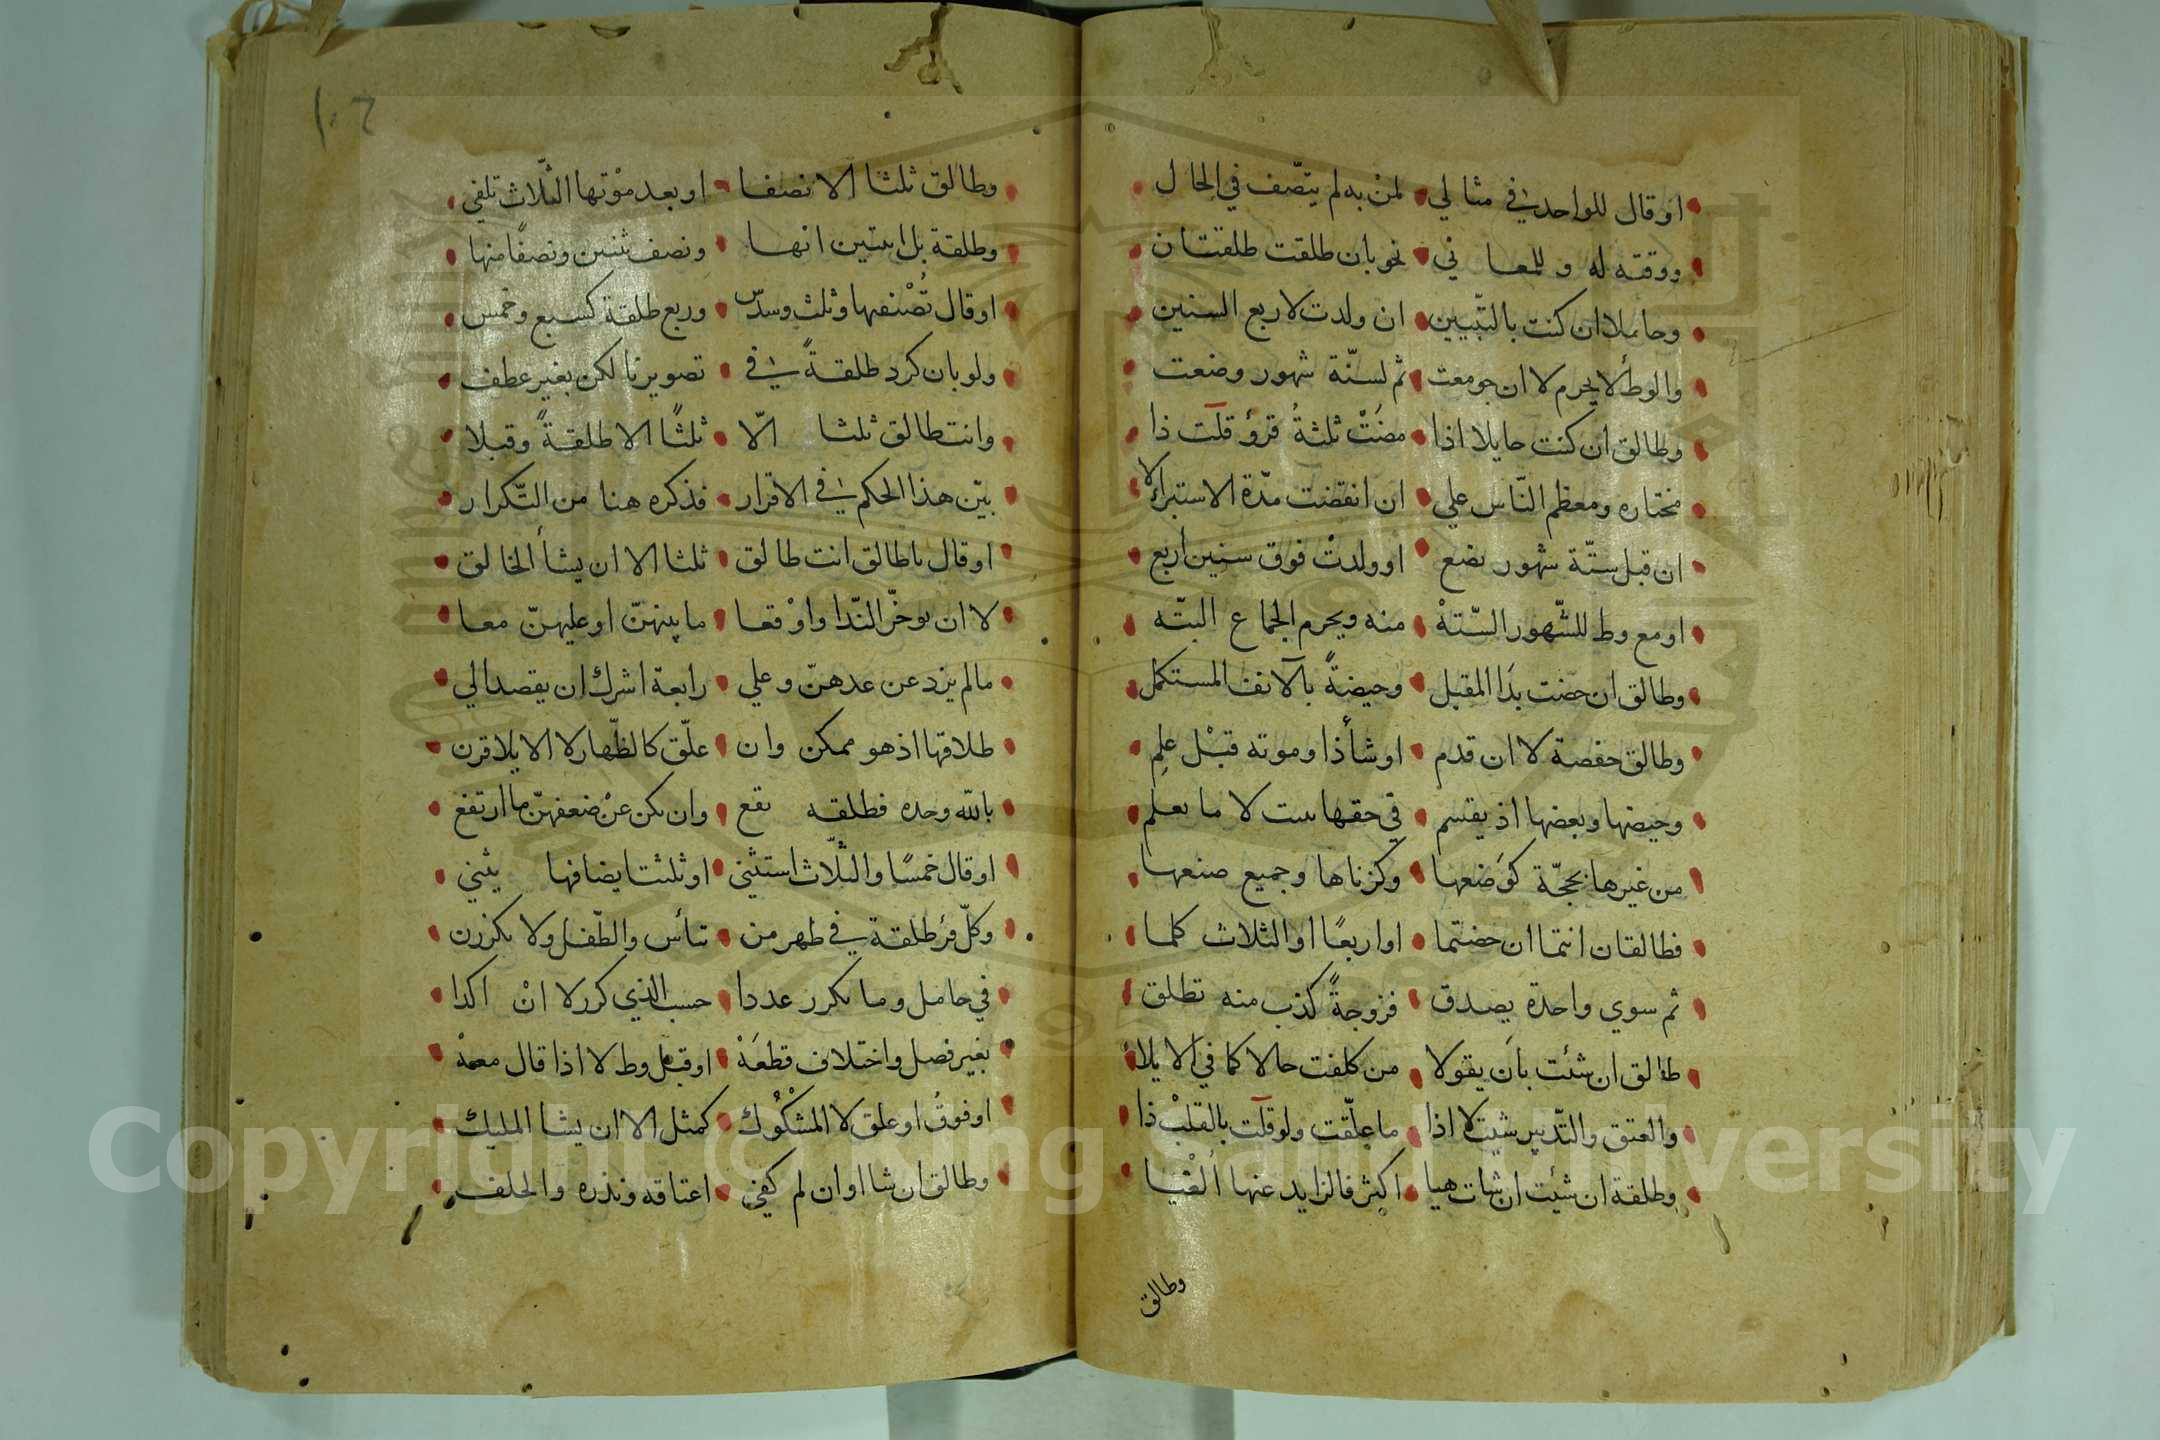 او قال للواحد في مثالي لمن به لم يتّصف في الحال
ووقته له و للمعاني نحو بان طلقت طلقتان
وحاملا ان كنت بالتّبيين ان ولدت لاربع السنين
والوطأ لا يحرم لا ان جومعت ثم لستّة شهور وضعت
وطالق ان كنت حايلا اذا مضت ثلثة قروء قلت ذا
مختاره ومعظم النّاس علي ان انقضت مدّة الاستبرا
ان قبل ستّة شهور تضع او ولدت فوق سنين أربع
او مع وط للشّهور السّته منه ويحرم الجماع البتّه
وطالق ان حضت بذا المقبل وحيضةً بالآنف المستكمل
وطالق حفصة لا ان قدم او شأ ذا وموته قبل علم
وحيضها وبعضها اذ يقسم في حقها لا ما يعلم
من غيرها بحجّة كوضعها وكزناها وجميع صنعها
فطالقان انتما ان حضتما او اربعًا او الثلاث كلما
ثم سوي واحدة يصدق فزوجةً كذب منه تطلق
طالق ان شئت بان يقولا من كلفت حالا كما في الايلا
والعتق والتّدبير شيت لا اذا ما علّقت ولو قلت بالقلب ذا
وطلقة ان شيت ان شات هيا اكثر فالزايد عنها الغيا
وطالق
١٠٢
وطالق ثلثا الا نصفا او بعد موتها الثلاث تلفي
وطلقة بل اثنتين انها ونصف ثنتين ونصفًا منها
او قال نصفها وثلث وسدس وربع طلقة كسبع وخمس
ولو بان كرر طلقةً في تصويرنا لكن بغير عطف
وانت طالق ثلثا الّا ثلثًا الا طلقةً وقبلا
بيّن هذا الحكم في الاقرار فذكره هنا من التّكرار
او قال يا طالق انت طالق ثلثا الا ان يشأ الخالق
لا ان يوخّر النّدا واوقعا ما بينهنّ او عليهنّ معا
مالم يزد عن عدهنّ وعلي رابعة اشرك ان يقصد الي
طلاقها اذ هو ممكن وان علّق كالظّهار لا الايلا قرن
بالله وحده فطلقه تقع وان يكن عن ضعفهنّ ما ارتفع
او قال خمسًا والثلاث استثني او ثلثتا يضافها يثني
وكلّ قرء طلقة في طهر من تيأس والطّفل ولا يكررن
في حامل وما يكرر عددا حسب الذي كرر لا ان اكدا
بغير فصل واختلاف قطعه او قبل وط لا اذا قال معه
او فوق او علق لا المشكوك كمثل الا ان يشا المليك
وطالق ان شا او ان لم كفي اعتاقه ونذره والحلف
Copyright © King Saud University